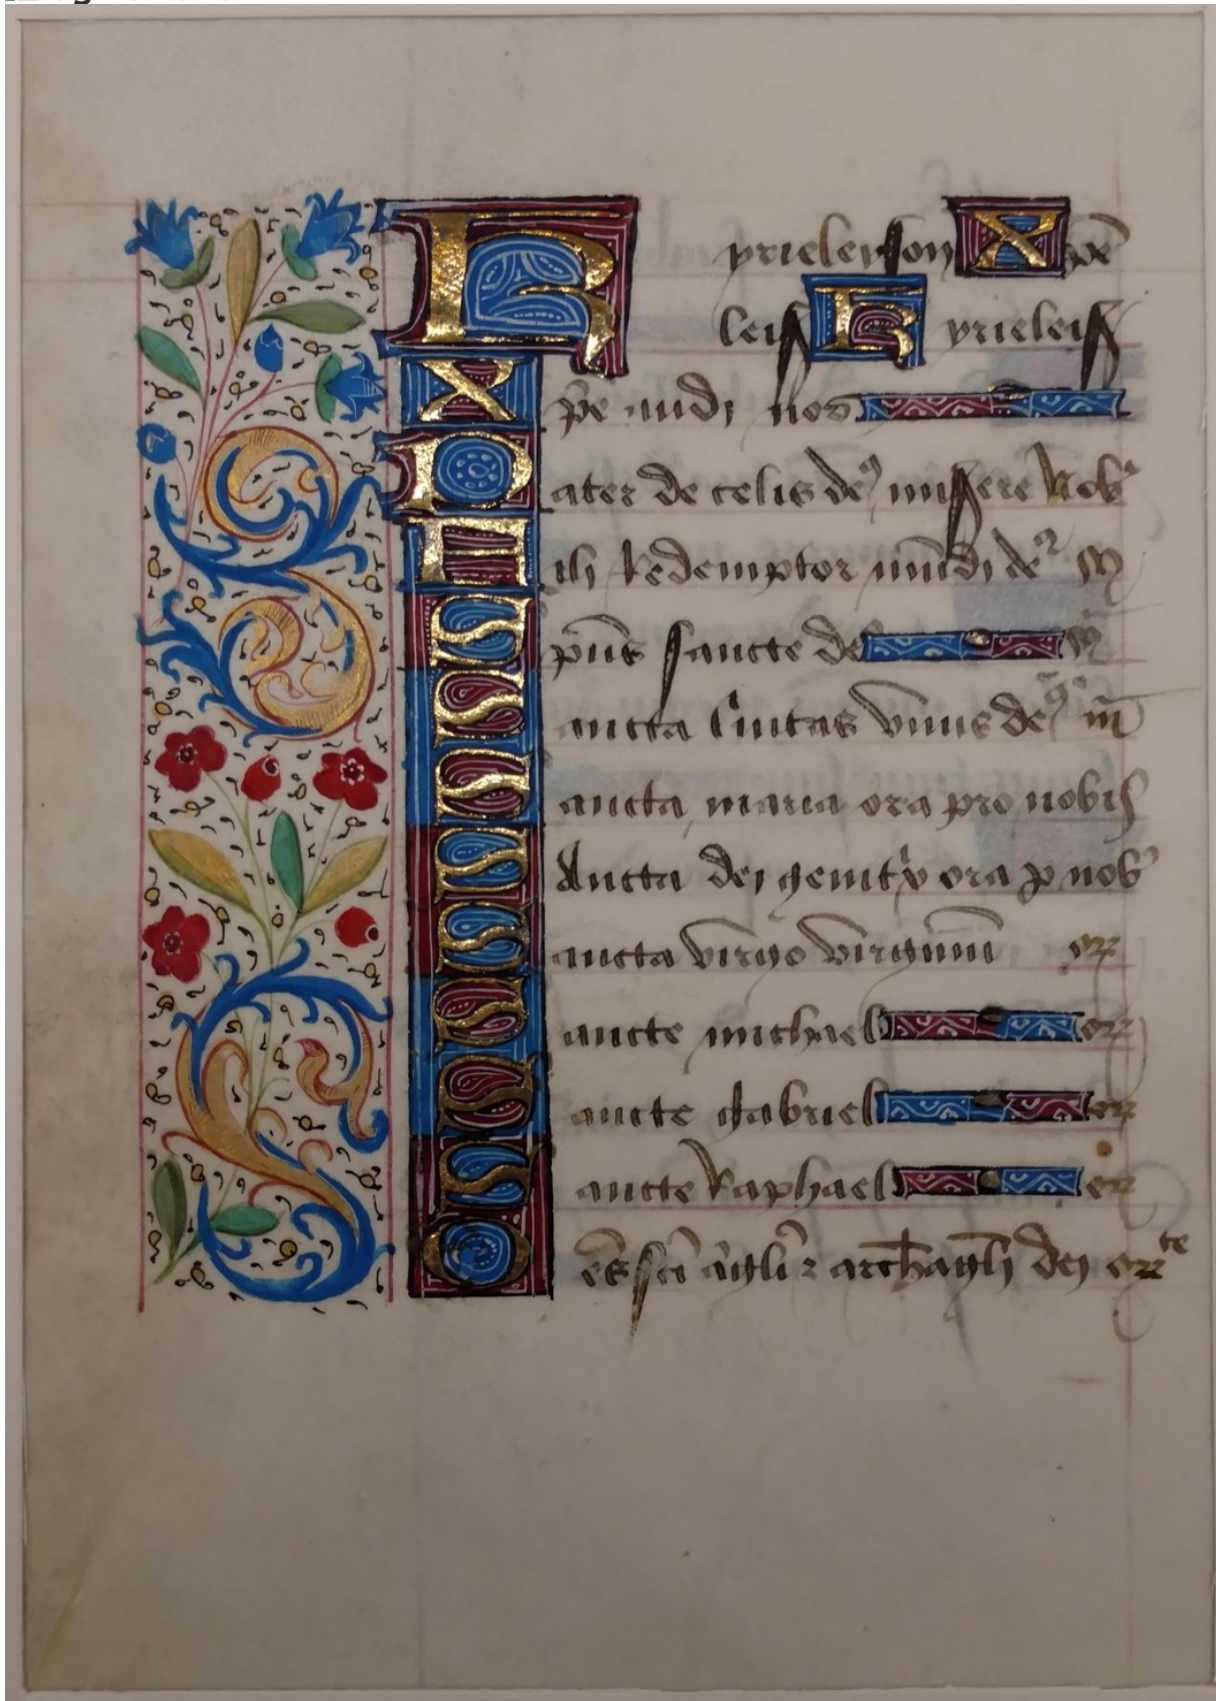 Kyrieleyson Xpe
leis Kyrieleis
Xpe audi nos
Pater de celis de⁹ miserere nob
Fili Redemptor mundi de⁹ m
Sp̄us sancte de⁹ m
Sancta trinitas vnus de⁹ m̄
Sancta maria ora pro nobis
Sancta dei genitͥx ora ꝓ nob
Sancta virgo virginum or
Sancte michael or
Sancte gabriel or
Sancte Raphael or
Om̄es sc̄i āgli ⁊ archāgli dei orᵗᵉ